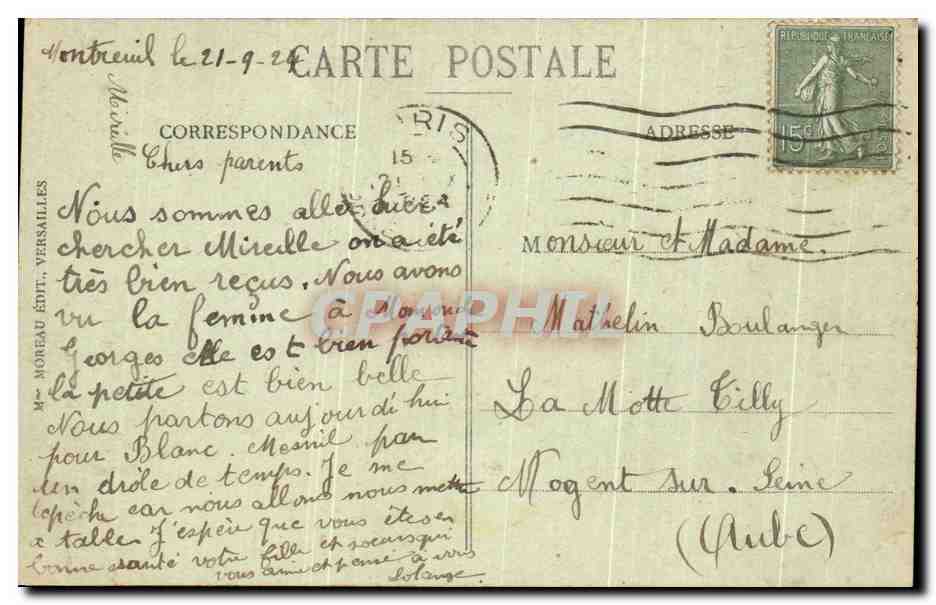 Montreuil le 21-9-24
CARTE POSTALE
Mireille
CORRESPONDANCE
ADRESSE
REPUBLIQUE FRANÇAISE
15c
PARIS
15
Chers parents
Nous sommes allé hier
chercher Mireille on a été
très bien reçus. Nous avons
vu la femme à
Georges elle est bien portante
la petite est bien belle
Nous partons aujourd'hui
pour Blanc. Mesnil par
un drôle de temps. Je me
depêche car nous allons nous mettre
a table. J'espère que vous êtes en
bonne santé votre fille et soeurs qui
vous aime et pense à vous
Solange.
Monsieur et Madame.
Mathelin Boulanger
La Motte Tilly
Nogent sur. Seine
(Aube)
Mme MOREAU ÉDIT., VERSAILLES
CPAPHIL